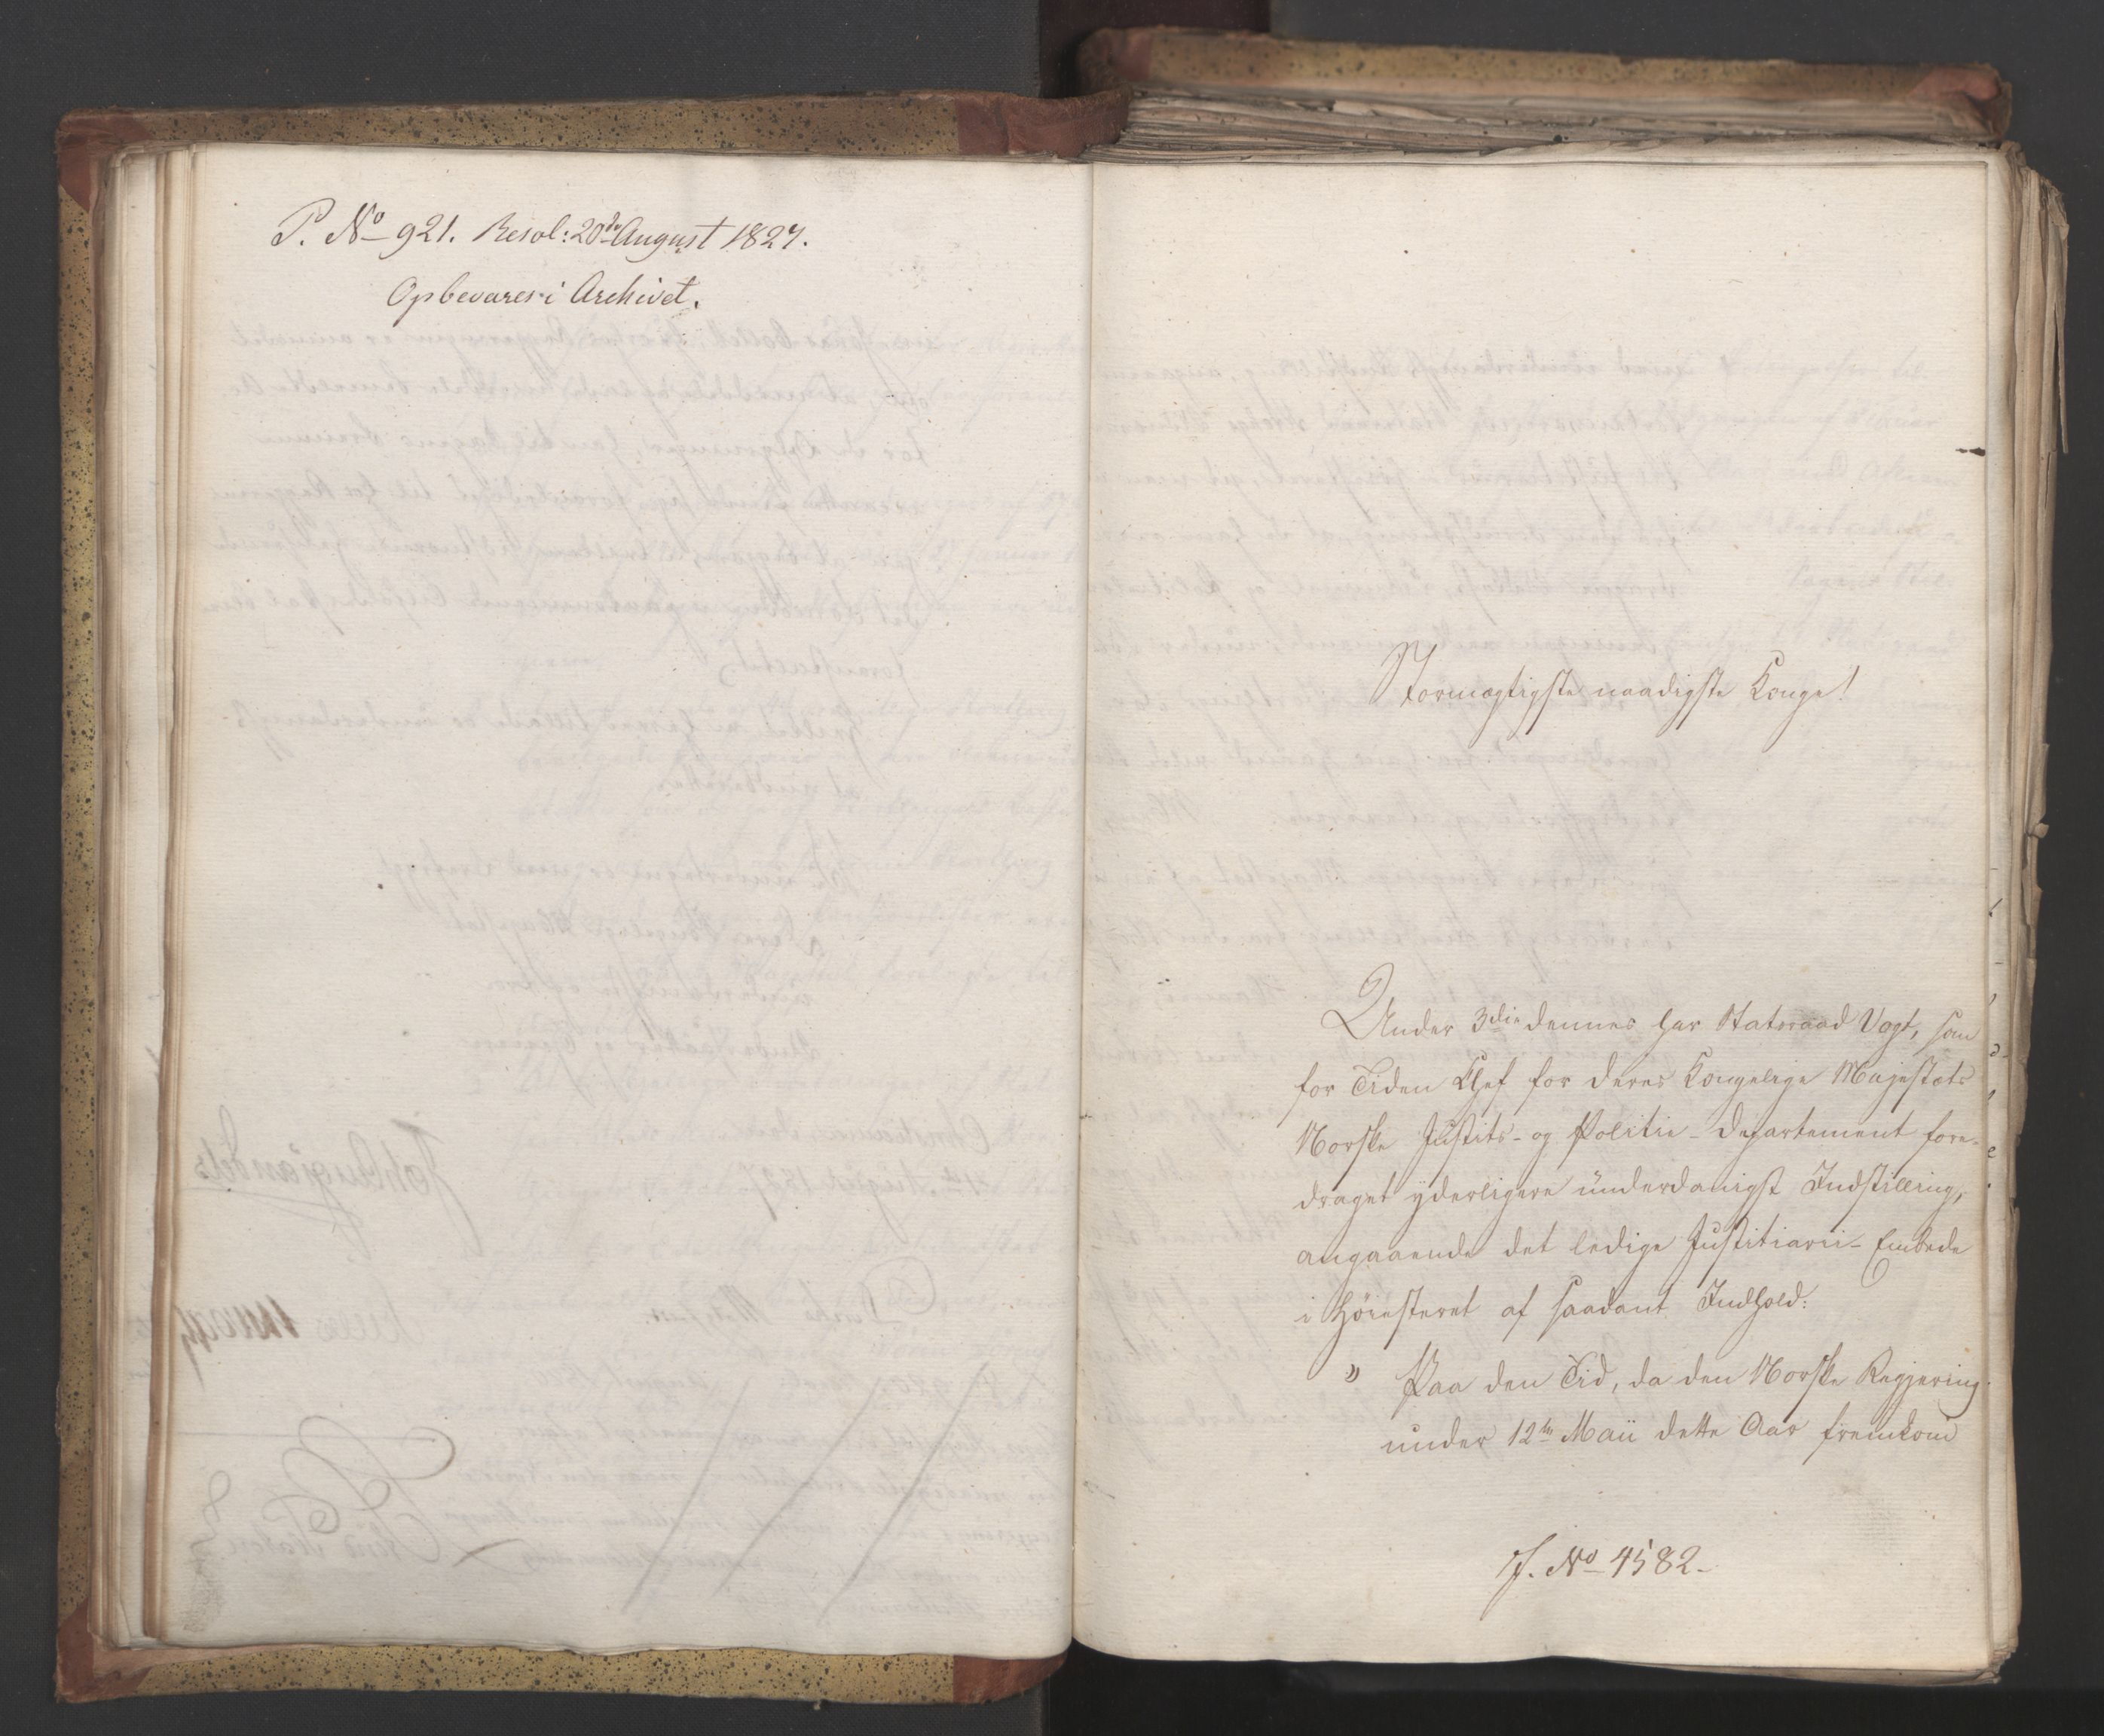 P. No 921. Resol: 20de August 1827.
Opbevares i Archivet.
Stormægtigste naadigste Konge!
Under 3die dennes har Statsraad Vogt, som
for Tiden Chef for Deres Kongelige Majestæts
Norske Justits- og Politie-Departement fore-
draget yderligere underdanigst Indstilling,
angaaende det ledige Justitiarii-Embede
i Høiesteret af saadant Indhold:
" Paa den Tid, da den Norske Regjering
under 12te Maii dette Aar fremkom
J. No 4582.